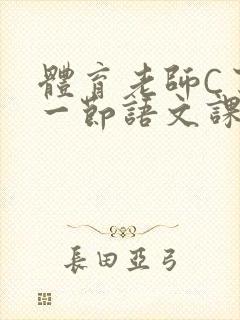 體育老師C
一節語文課
長田亞弓